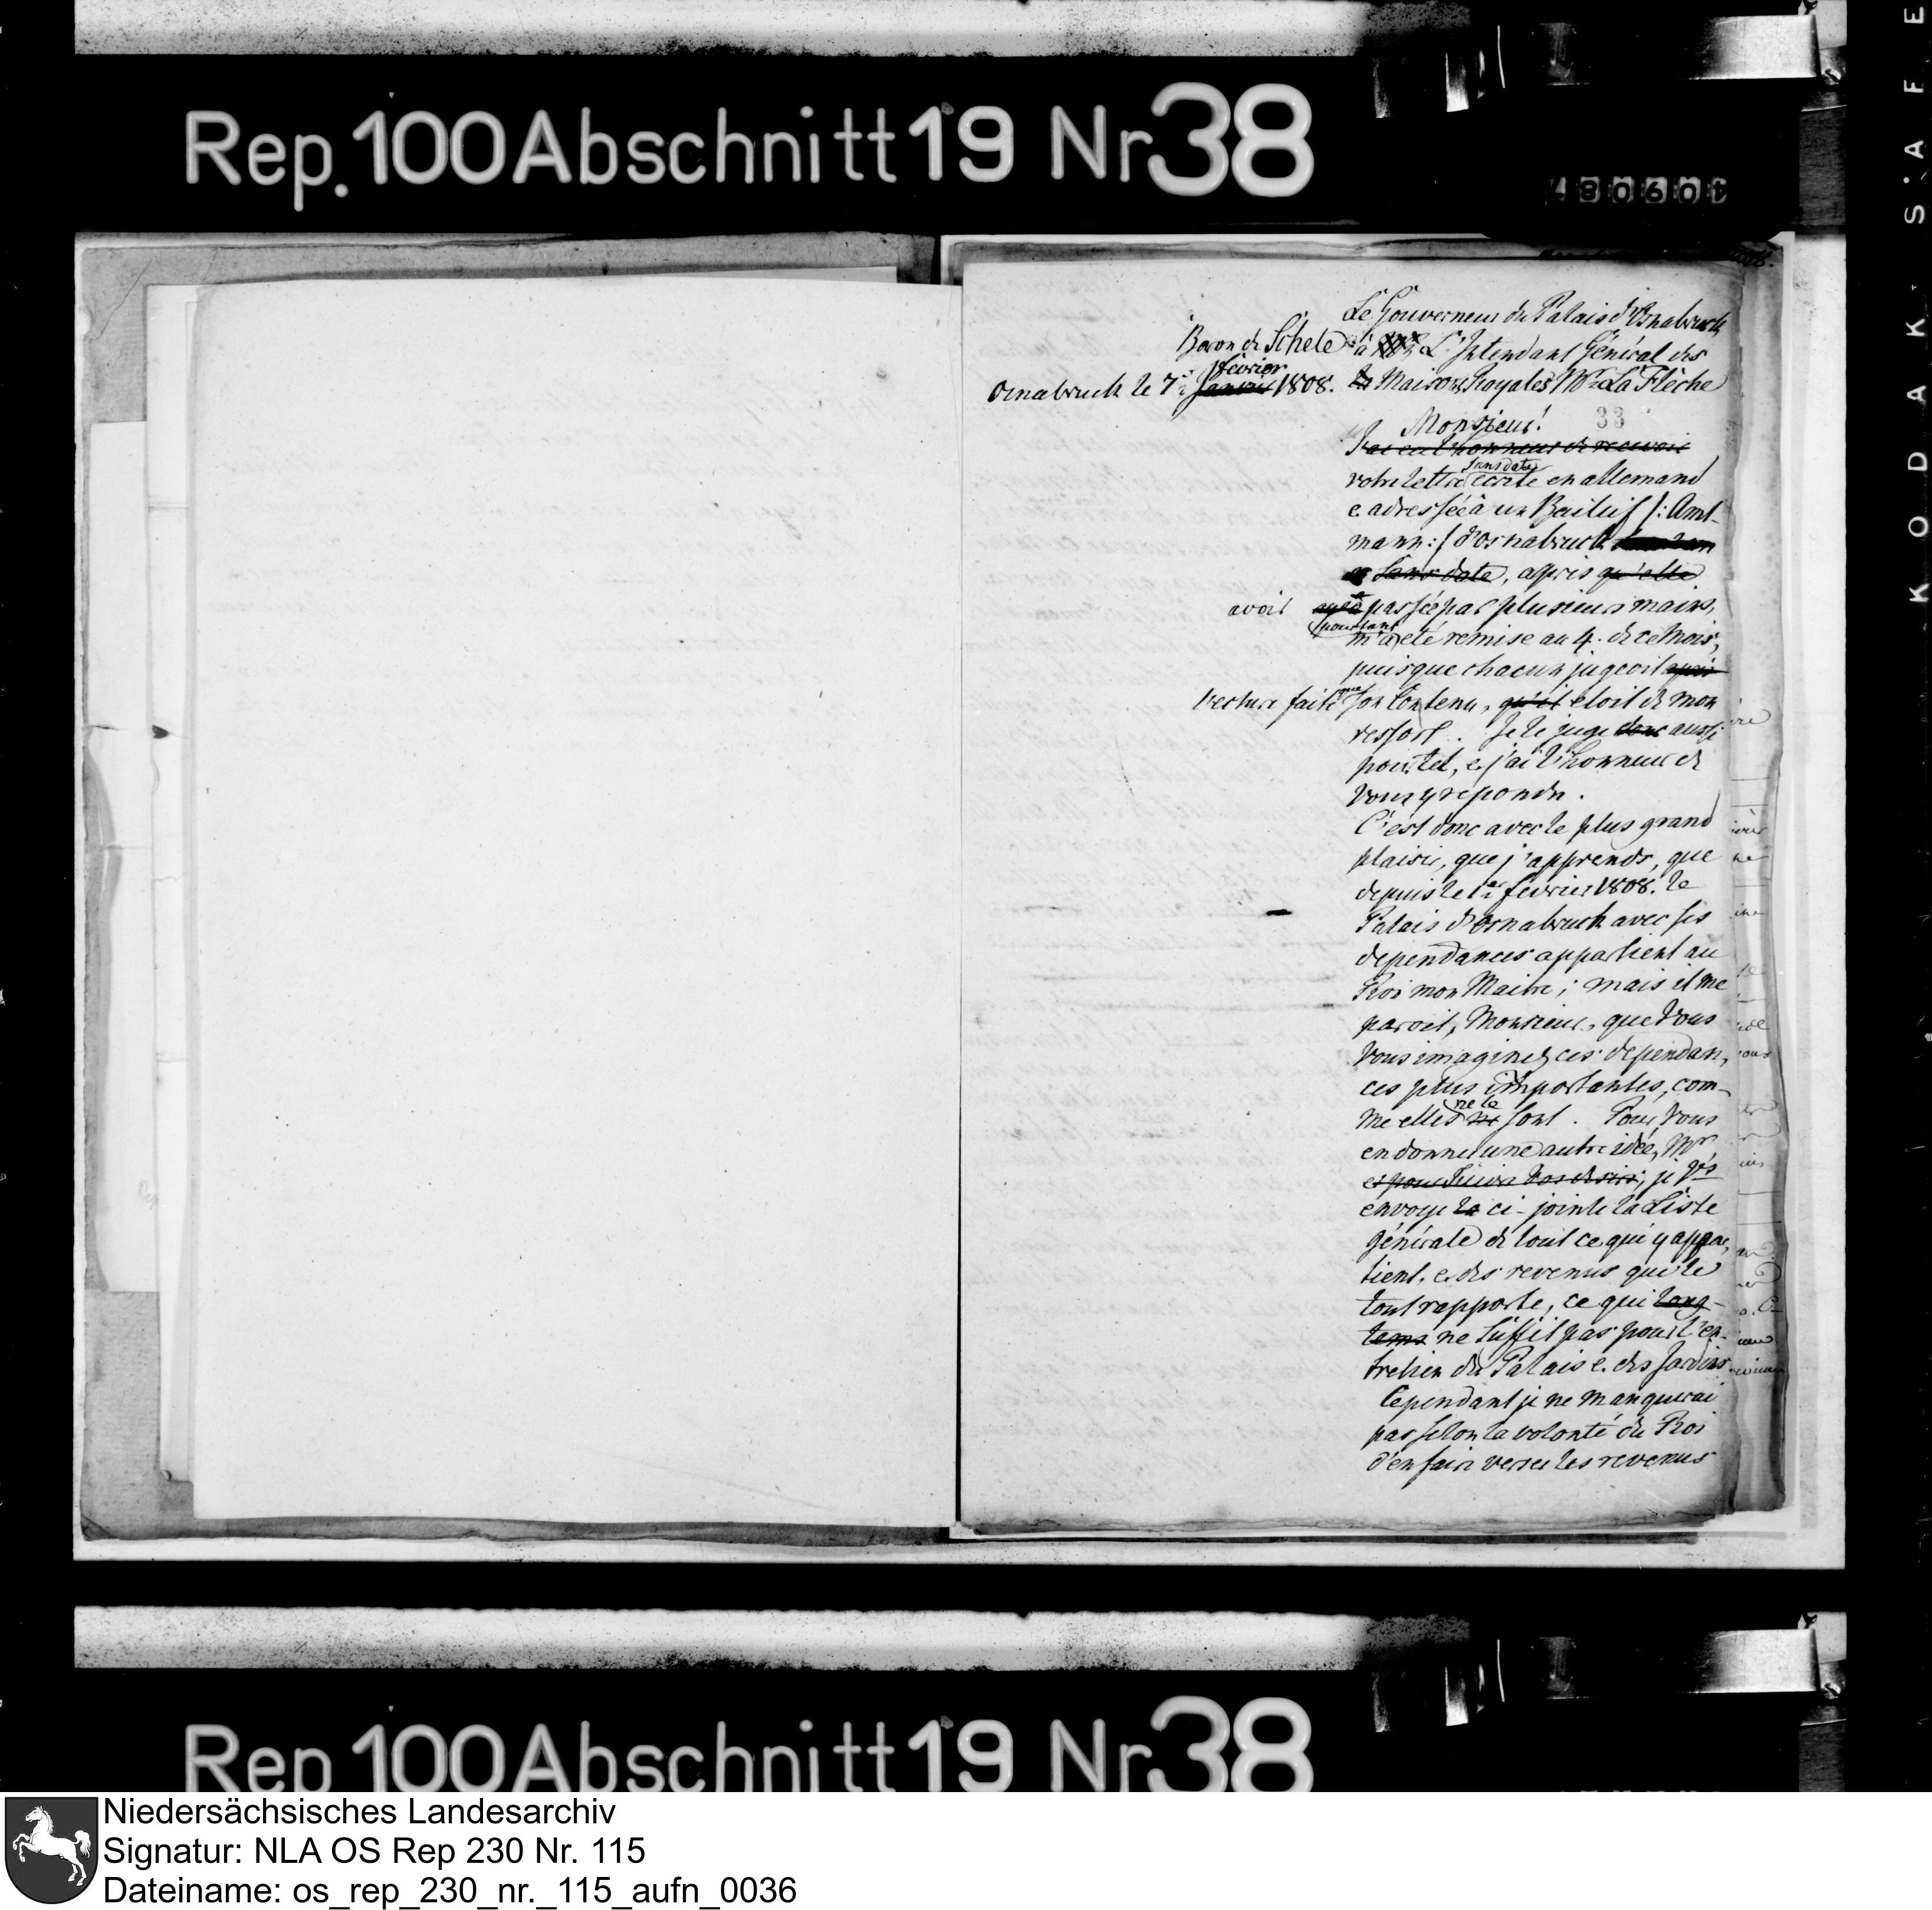 Rep. 100 Abschnitt 19 Nr 38
Le Gouverneur du Palais d'Osnabruck
Baron de Schele à L'Intendant Général des
fevrier
Osnabruck le 7 Janvier 1808. les Maisons Royales Mr. La Flèche
33
Monsieur!
J'ai eu l'honneur de recevoir
sans date
votre lettre ecrite en allemand
e. adressée à un Bailif /: Amt-
mann :/ d'Osnabruck
sans date, apris qu'elle
avoit passée par plusieurs mains,
pourtant
m'a eté remise au 4. de ce Mois,
puisque chacun jugeoit apris
que
lecture faite son Contenu, qu'il etoit de mon
ressort. Je le juge donc aussi
pour tel, e. j'ai l'honneur de
Vous y repondre.
C'est donc avec le plus grand
plaisir, que j'apprends, que
depuis le 1er fevrier 1808. le
Palais d'Osnabruck avec ses
dependances appartient au
Roi mon Maitre; mais il me
paroit, Monsieur, que Vous
Vous imaginez ces dependan,
ces plus importantes, com-
ne le
me elles ne sont. Pour Vous
en donner une autre idée, Mr
et pour suivre Vos desirs, je
envoye la ci-jointe la Liste
générale de tout ce qui y appar,
tient, e. des revenus que le
tout rapporte, ce qui long-
tems ne suffit pas pour l'en-
tretien du Palais e. des Jardins
Cependant je ne manquerai
pas selon la volonté du Roi
d'en faire verser les revenus
Rep 100 Abschnitt 19 Nr 38
KODAK S'AFE
Niedersächsisches Landesarchiv
Signatur: NLA OS Rep 230 Nr. 115
Dateiname: os_rep_230_nr._115_aufn_0036